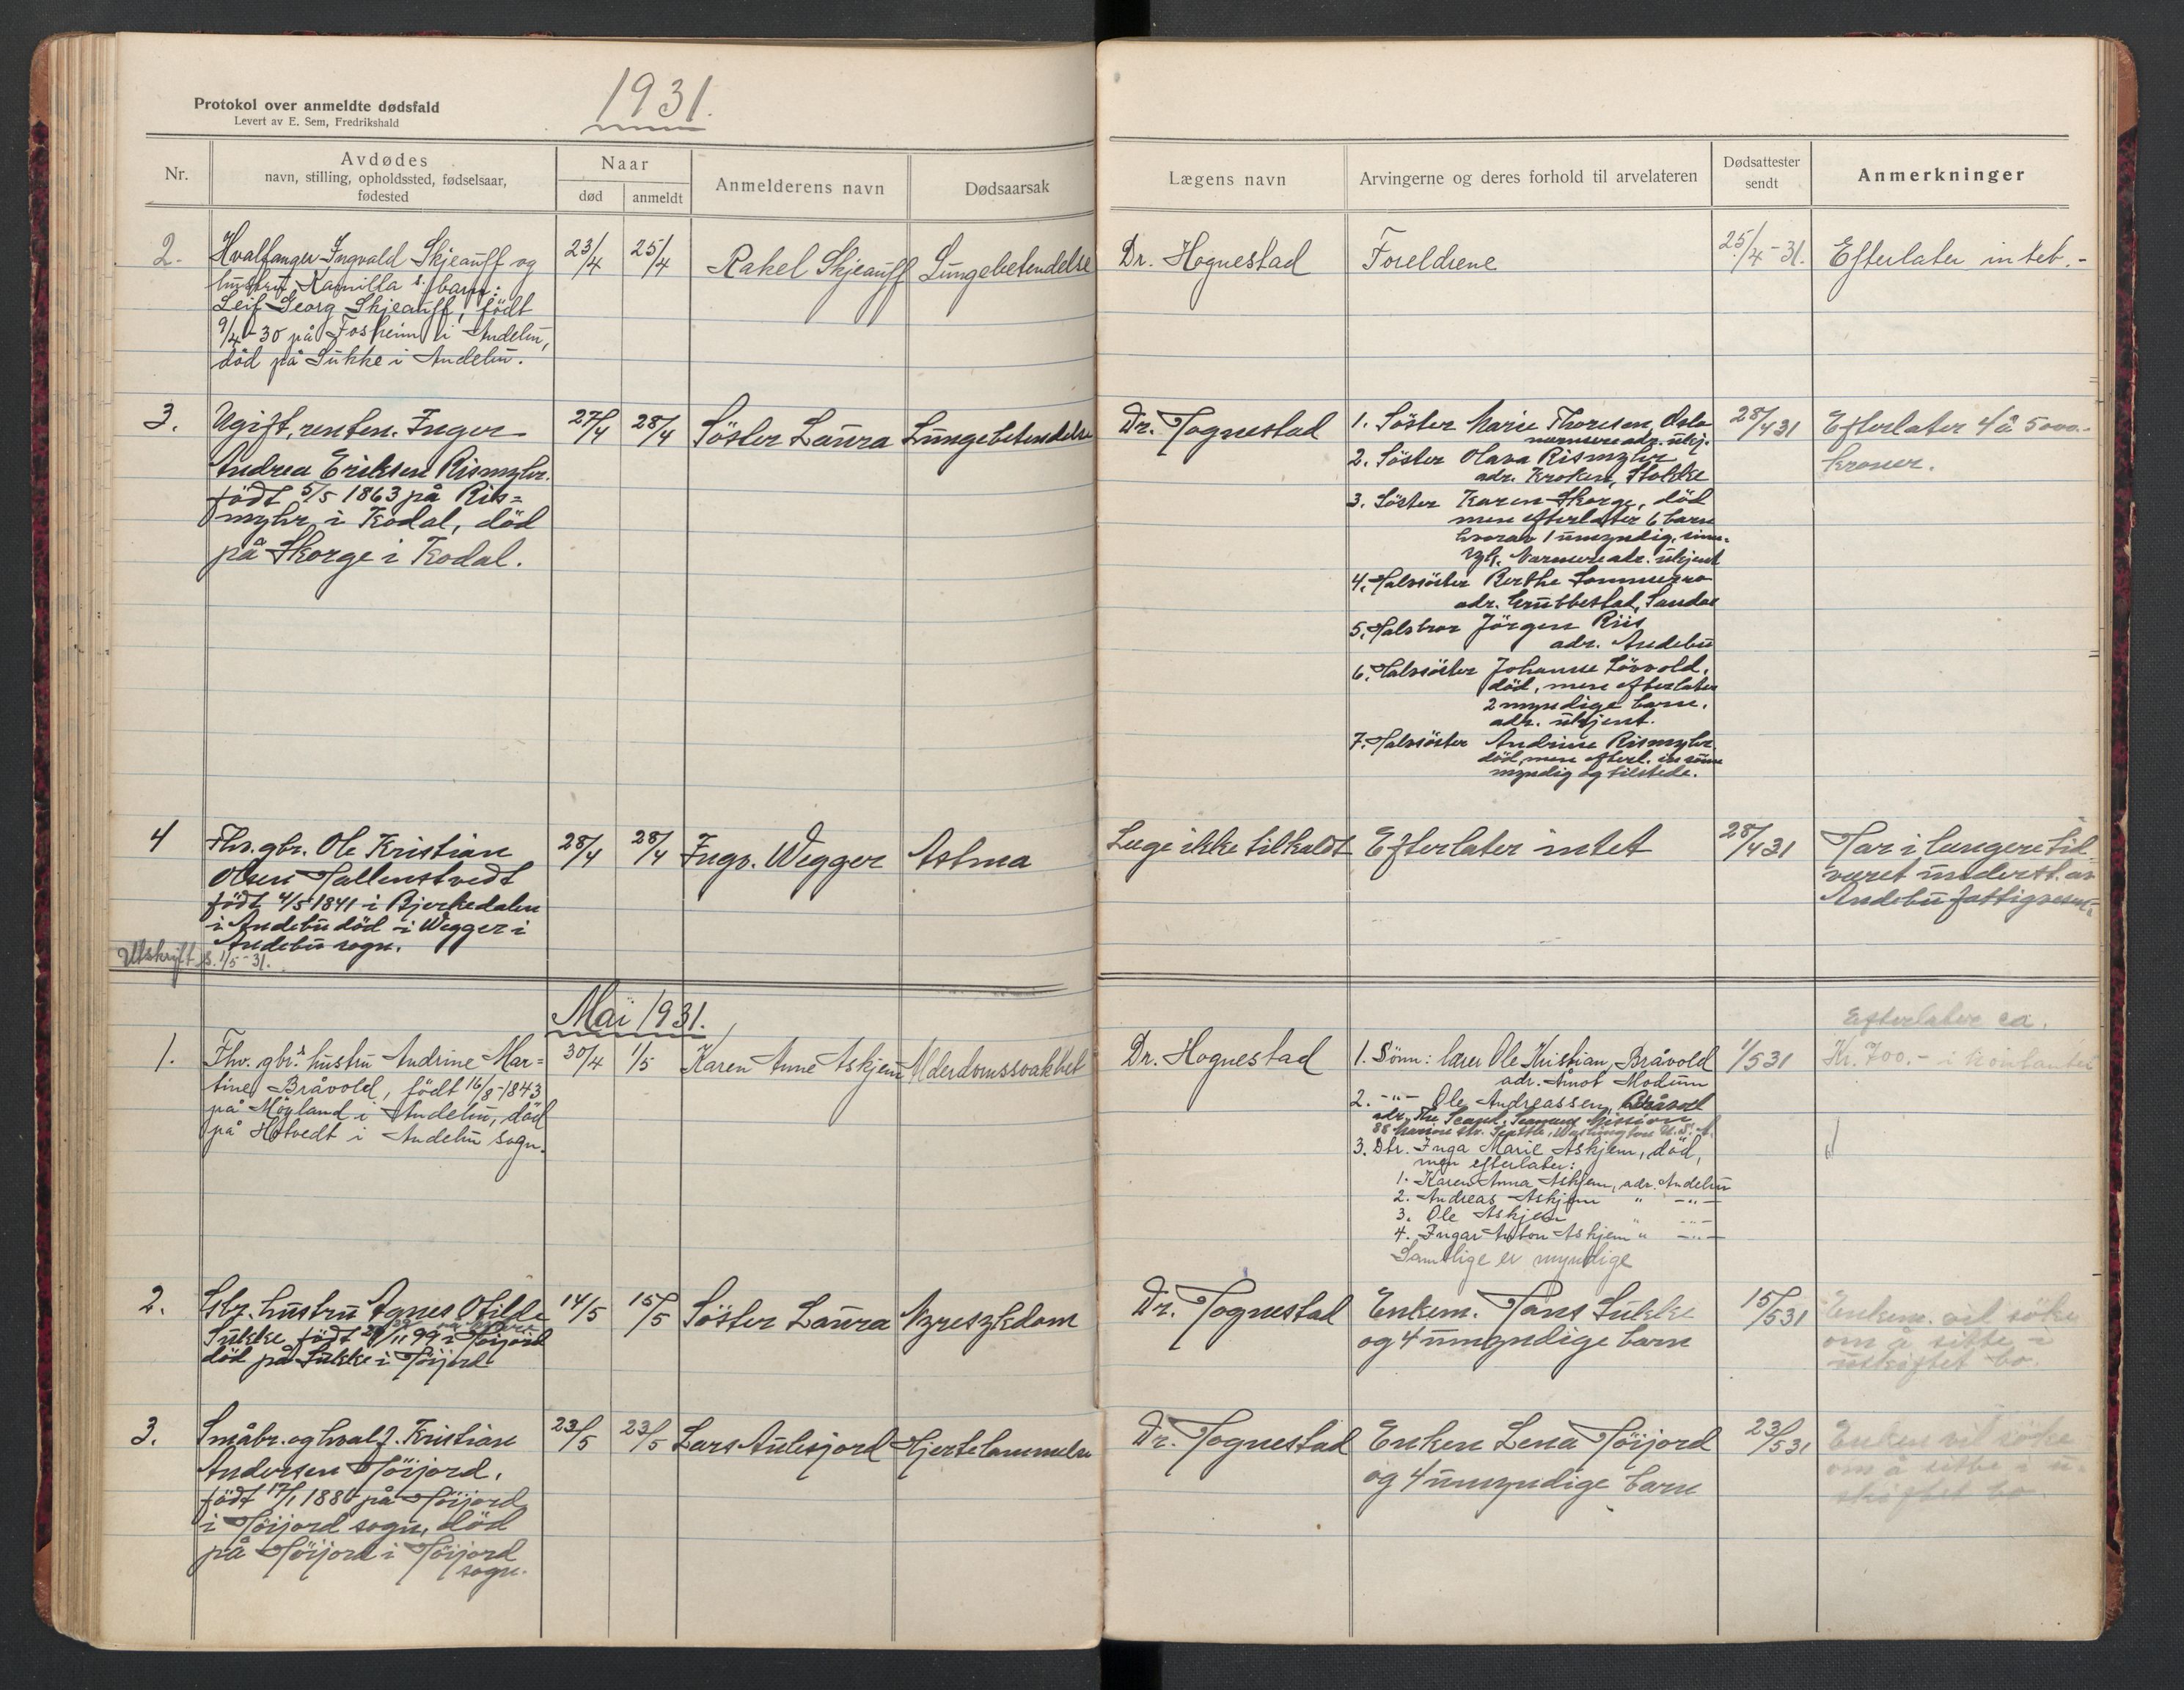 1931.
Protokol over anmeldte dødsfald
Levert av E. Sem, Fredrikshald
Nr.
Avdødes
navn, stilling, opholdssted, fødselsaar,
fødested
Naar
død
anmeldt
Anmelderens navn
Dødsaarsak
Lægens navn
Arvingerne og deres forhold til arvelateren
Dødsattester
sendt
Anmerkninger
2.
Hvalfanger Ingvald Skjeauff og
hustru Kamilla s. barn:
Leif Georg Skjeauff, født
9/4-30 på Fosheim i Andebu,
død på Sukke i Andebu.
23/4
25/4
Rakel Skjeauff
Lungebetendelse
Dr. Hognestad
Foreldrene
25/4-31.
Efterlater intet.-
3.
Ugift, renten. Inger
Andrea Eriksen Rismyhr.
født 5/5 1863 på Ris=
myhr i Kodal, død
på Skorge i Kodal.
27/4
28/4
Söster Laura
Lungebetendelse
Dr. Hognestad
1. Söster Marie Thoresen, Oslo
nærmere adr. ukj.
2. Söster Olava Rismyhr
adr. Kroken, Stokke
3. Söster Karen Skorge, död
men efterlater 6 barn
hvorav 1 umyndig, sinn-
syk. Nærmere adr. ukjent
4. Halvsöster Berthe Sommerro
adr. Grubbestad, Sandar
5. Halvbror Jörgen Riis
adr. Andebu
6. Halvsöster Johanne Lövvold,
död, men efterlater
2 myndige barn.
adr. ukjent.
7. Halvsöster Andrine Rismyhr
död, men efterl. en sönn
myndig og tilstede.
28/4 31
Efterlater 4 à 5000.-
kroner.
4
Fhv. gbr. Ole Kristian
Olsen Hallenstvedt
født 4/5 1841 i Bjerkedalen
i Andebu död i Wegger i
Andebu sogn.
28/4
28/4
Ingv. Wegger
Astma
Læge ikke tilkaldt
Efterlater intet
28/4 31
Har i lengere tid
været underst. av
Andebu fattigvesen.
Utskrift s. 1/5-31.
Mai 1931.
1.
Fhv. gbr.s hustru Andrine Mar=
tine Bråvold, født 16/8-1843
på Möyland i Andebu, död
på Hotvedt i Andebu sogn.
30/4
1/5
Karen Anne Askjem
Alderdomssvakhet
Dr. Hognestad
1. Sönn: lærer Ole Kristian Bråvold
adr. Åmot Modum
2. -"- Ole Andreassen Bråvol
adr. The Scand. Seamens Mission
88 Marion str. Seattle, Washington U.S.A.
3. Dtr. Inga Marie Askjem, död,
men efterlater:
1. Karen Anna Askjem, adr. Andebu
2. Andreas Askjem " -"-
3. Ole Askjem " -"-
4. Ingar Anton Askjem " -"-
Samtlige er myndige
1/5 31
Efterlater ca.
Kr. 700.- i kontanter
2.
Gbr. hustru Agnes Otilde
Sukke född 29/11 99 i Höijord
död på Sukke i Höijord
14/5
15/5
Söster Laura
Nyresykdom
Dr. Hognestad
Enkem. Hans Sukke
og 4 umyndige barn
15/5 31
Enkem. vil söke
om å sitte i
uskiftet bo.
3.
Småbr. og hvalf. Kristian
Andersen Höijord.
født 17/1 1880 på Höijord
i Höijord sogn, död
på Höijord i Höijord
sogn.
23/5
23/5
Lars Aulesjord
Hjertelammelse
Dr. Hognestad
Enken Lena Höijord
og 4 umyndige barn
23/5 31
Enken vil söke
om å sitte i u-
skiftet bo.